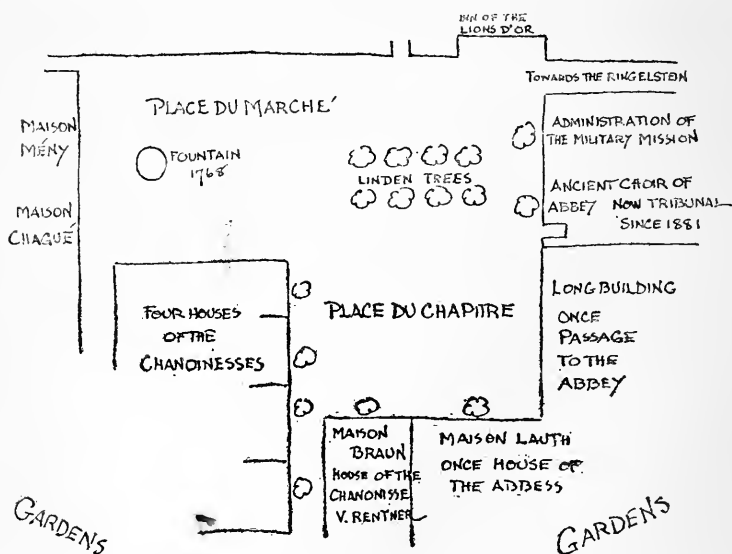 INN OF THE
LIONS D'OR
TOWARDS THE RINGELSTEIN
PLACE DU MARCHÉ
MAISON
MÉNY
FOUNTAIN
1768
LINDEN TREES
ADMINISTRATION OF
THE MILITARY MISSION
MAISON
CHAGUÉ
ANCIENT CHOIR OF
ABBEY NOW TRIBUNAL
SINCE 1881
FOUR HOUSES
OF THE
CHANOINESSES
PLACE DU CHAPITRE
LONG BUILDING
ONCE
PASSAGE
TO THE
ABBEY
MAISON
BRAUN
HOUSE OF THE
CHANONISSE
V. RENTNER
MAISON LAUTH
ONCE HOUSE OF
THE ABBESS
GARDENS
GARDENS